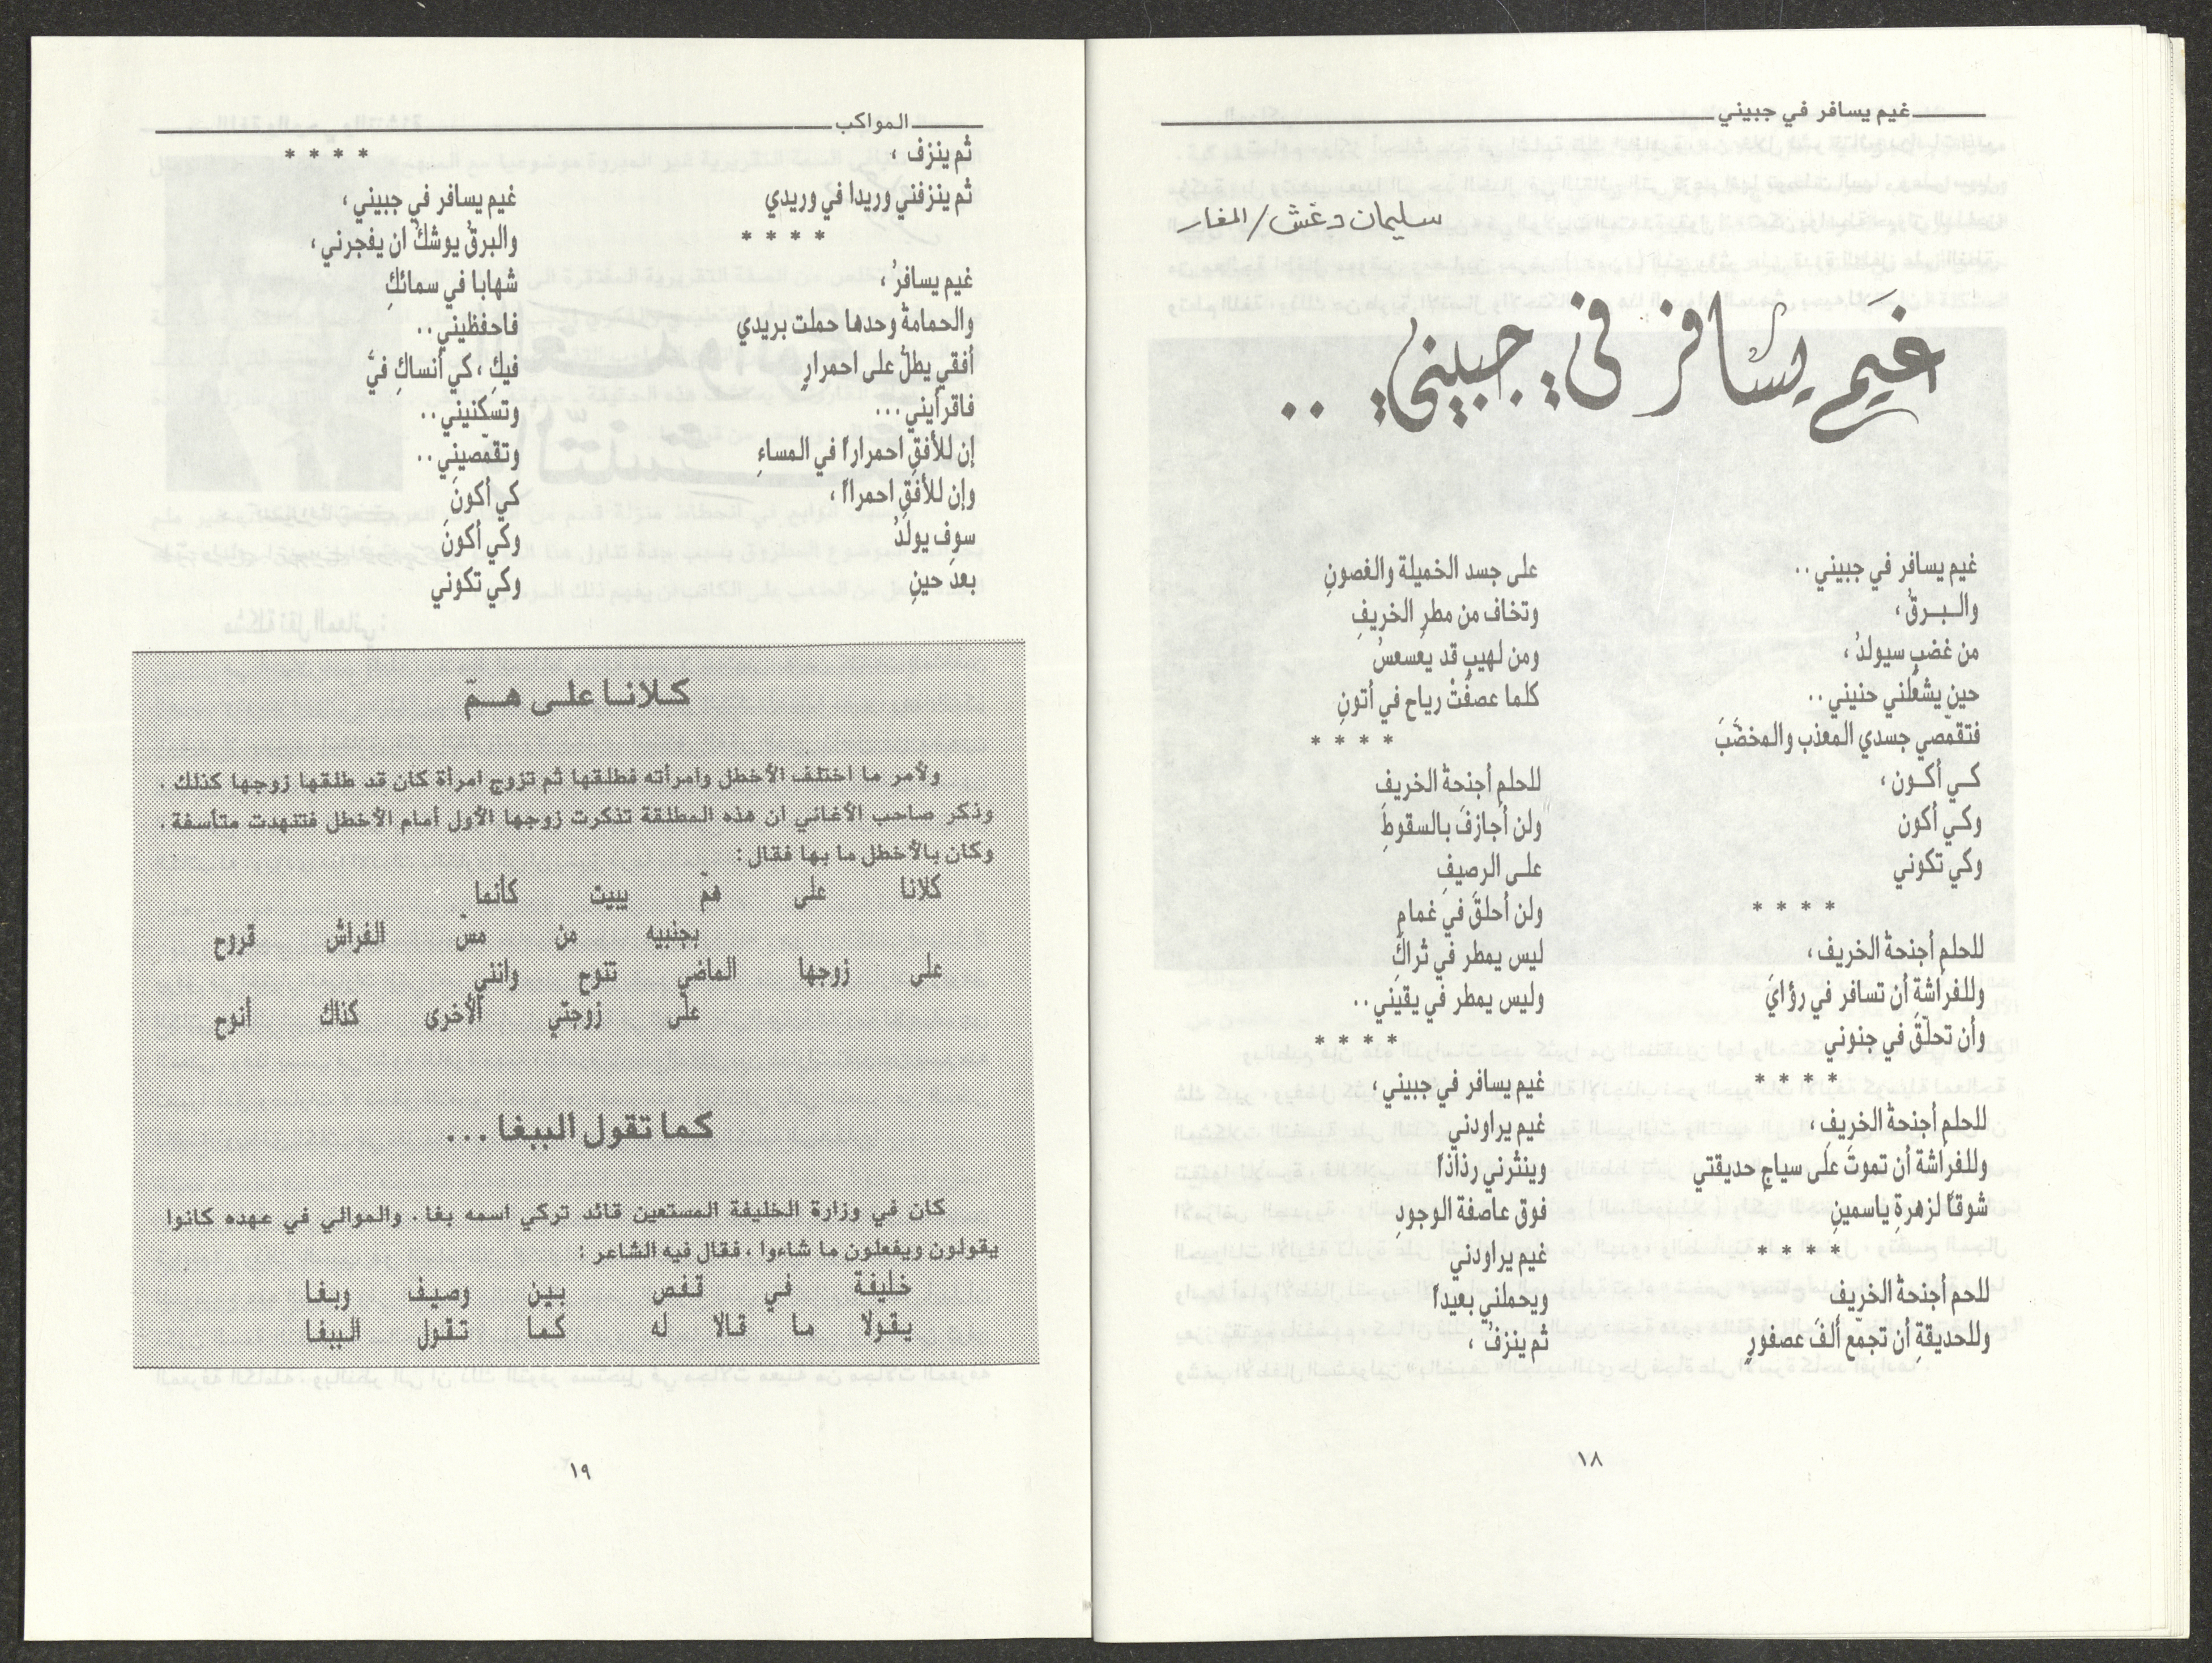 غيم يسافر في جبيني
سليمان دغش / المغار
غيم يسافر في جبيني ..
غيم يسافر في جبيني ..
والـبـرقُ ،
من غضبٍ سيولدُ ،
حين يشعُلني حنيني ..
فتقمّصي جسدي المعذب والمخضّبَ
كـي أكـون ،
وكـي أكون
وكي تكوني
* * * *
للحلمِ أجنحةُ الخريف ،
وللفراشةِ أن تسافر في رؤايَ
وأن تحلّقَ في جنوني
* * * *
للحلمِ أجنحةُ الخريفِ ،
وللفراشة أن تموتَ على سياجِ حديقتي
شوقاً لزهرةِ ياسمينِ
* * * *
للحم أجنحةُ الخريفِ
وللحديقةِ أن تجمّع ألفَ عصفورٍ
على جسد الخميلة والغصونِ
وتخاف من مطرِ الخريفِ
ومن لهيبٍ قد يعسعسُ
كلما عصفَتْ رياح في أتونِ
* * * *
للحلم أجنحةُ الخريف
ولن أجازفَ بالسقوطِ
على الرصيفِ
ولن أحلقَ في غمامٍ
ليس يمطر في ثراكِ
وليس يمطر في يقيني ..
* * * *
غيم يسافر في جبيني ،
غيم يراودني
وينثرني رذاذاً
فوق عاصفة الوجودِ
غيم يراودني
ويحملني بعيداً
ثم ينزفُ ،
١٨
المواكب
ثم ينزف ،
ثم ينزفني وريدا في وريدي
* * * *
غيم يسافرُ ،
والحمامةُ وحدها حملت بريدي
أفقي يطلُ على احمرارٍ
فاقرأيني ...
إن للأفقِ احمراراً في المساءِ
وإن للأفقِ احمراا ،
سوف يولدُ
بعد حينِ
* * * *
غيم يسافر في جبيني ،
والبرقُ يوشكُ ان يفجرني ،
شهابا في سمائكِ
فاحفظيني ..
فيكِ ، كي أنساكِ فيَّ
وتسكنيني ..
وتقمّصيني ..
كي أكونَ
وكي أكونَ
وكي تكوني
كـلانـا علـى هـمّ
ولأمر ما اختلف الأخطل وامرأته فطلقها ثم تزوج امرأة كان قد طلقها زوجها كذلك .
وذكر صاحب الأغاني ان هذه المطلقة تذكرت زوجها الأول أمام الأخطل فتنهدت متأسفة .
وكان بالأخطل ما بها فقال :
كلانا على همّ يبيت كأنما
بجنبيه من مسّ الفراش قروح
على زوجها الماضي تنوح وانني
على زوجتي الأخرى كذاك أنوح
كما تقول الببغا ...
كان في وزارة الخليفة المستعين قائد تركي اسمه بغا . والموالي في عهده كانوا
يقولون ويفعلون ما شاءوا ، فقال فيه الشاعر :
خليفة في قفص بين وصيف وبغا
يقولا ما قالا له كما تقول الببغا
١٩